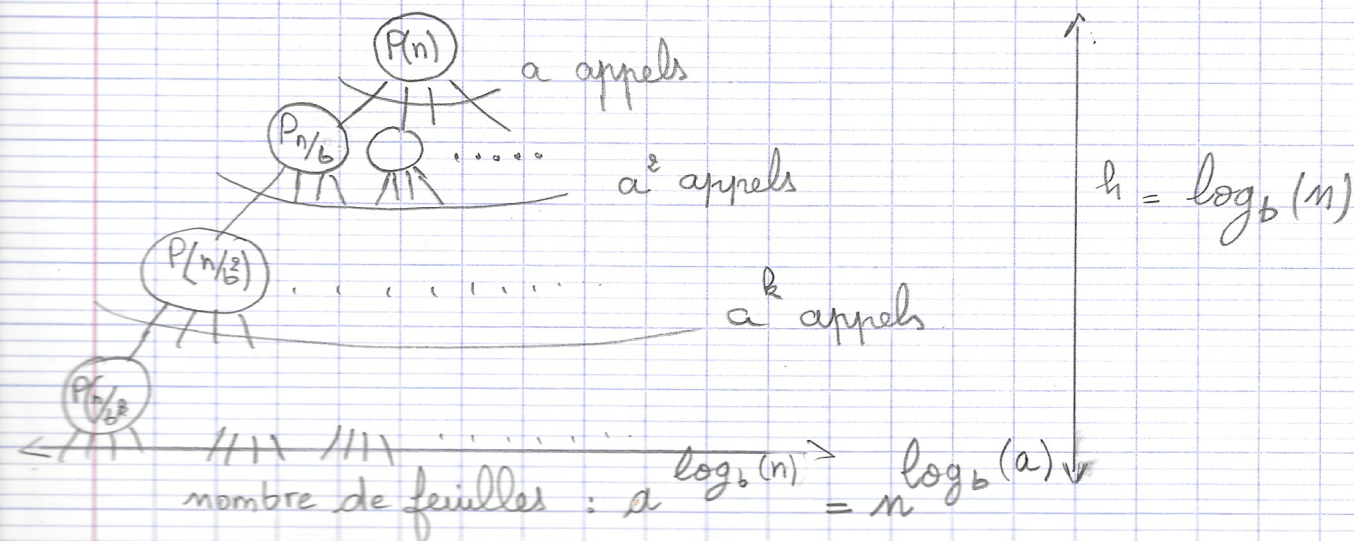 P(n)
a appels
Pn/b
a² appels
h = log_b(n)
P(n/b²)
a^k appels
nombre de feuilles : a^log_b(n) = n^log_b(a)